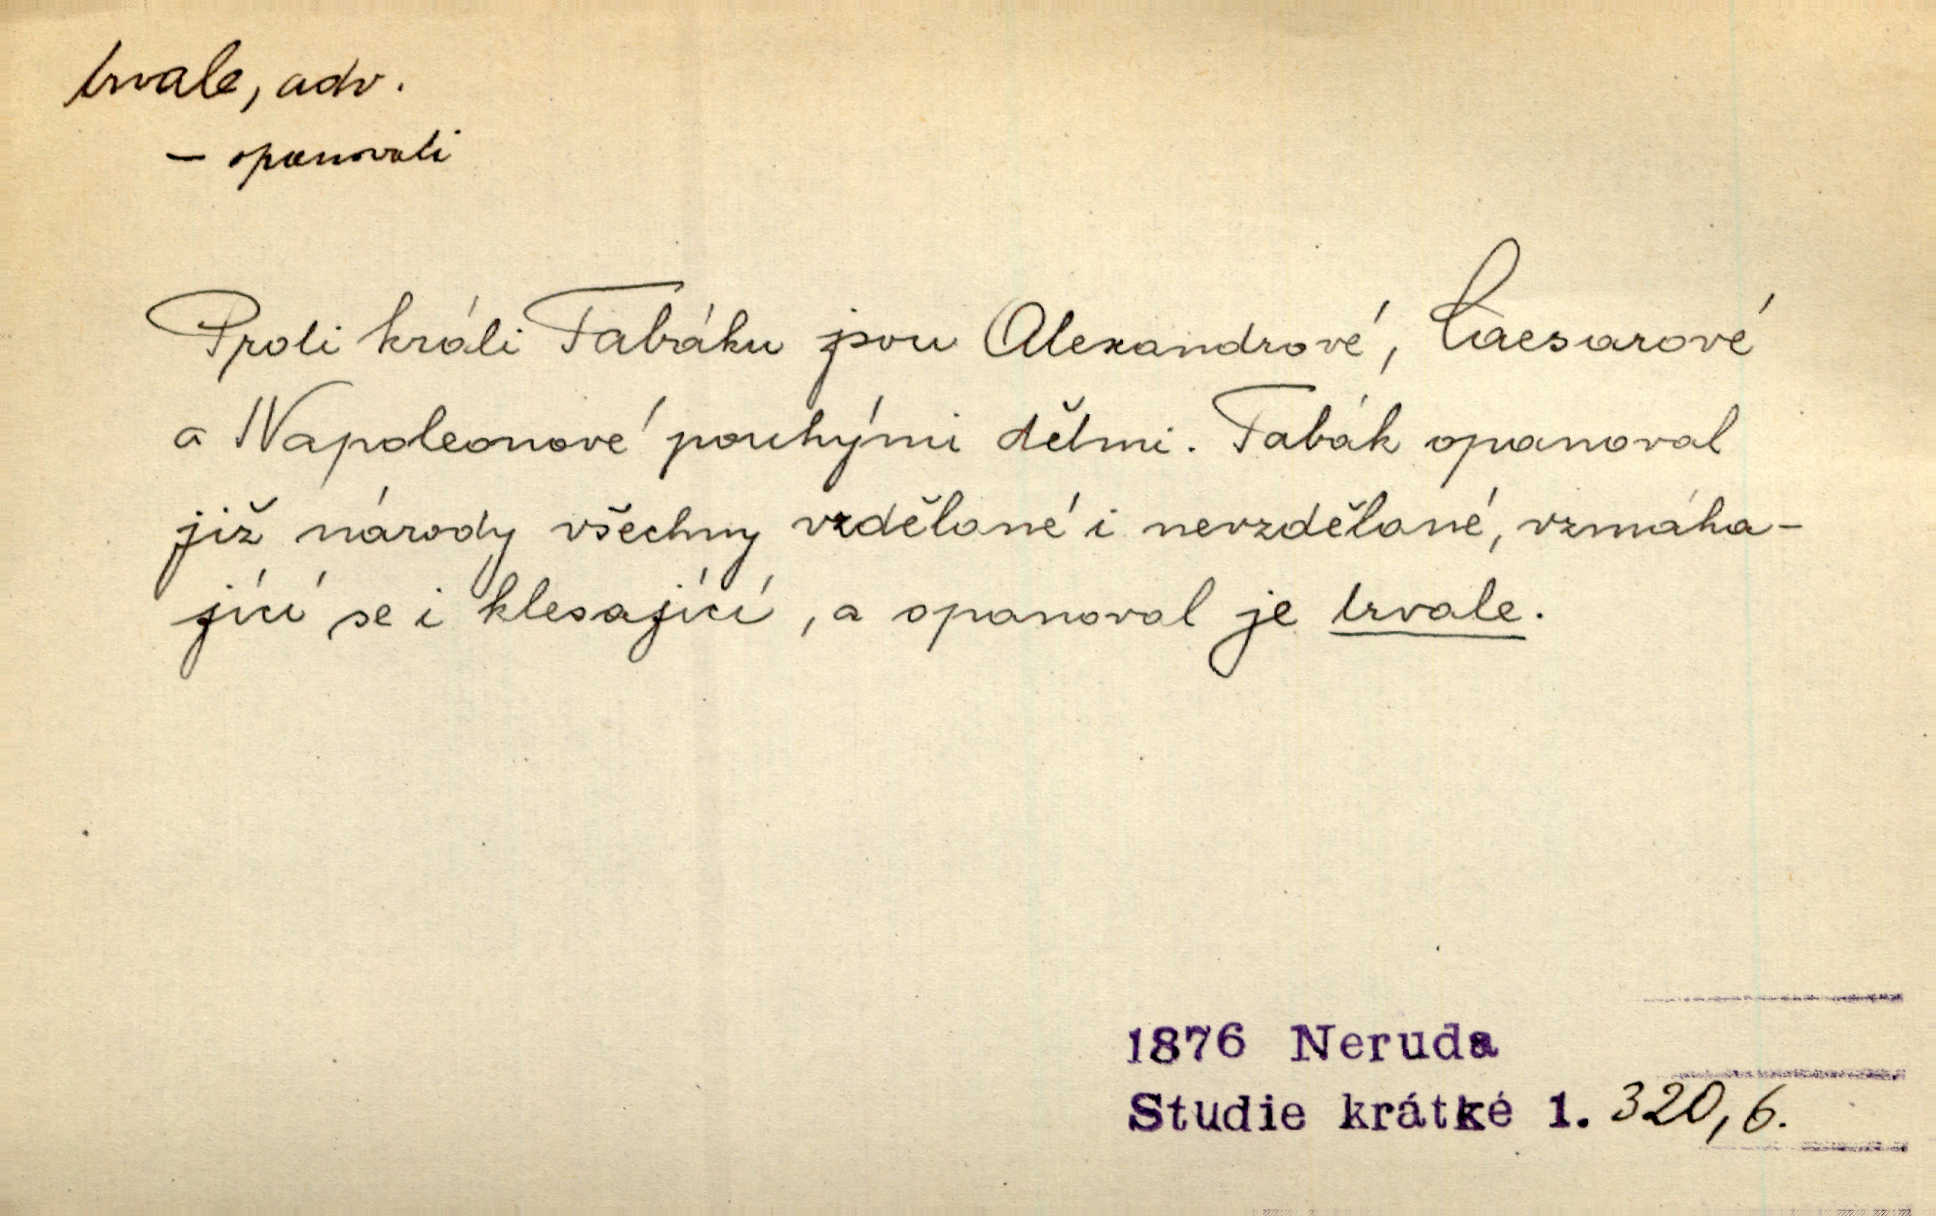 trvale, adv.
– opanovati
Proti králi Tabáku jsou Alexandrové, Caesarové
a Napoleonové pouhými dětmi. Tabák opanoval
již národy všechny vzdělané i nevzdělané, vzmáha-
jící se i klesající, a opanoval je trvale.
1876 Neruda
Studie krátké 1. 320, 6.